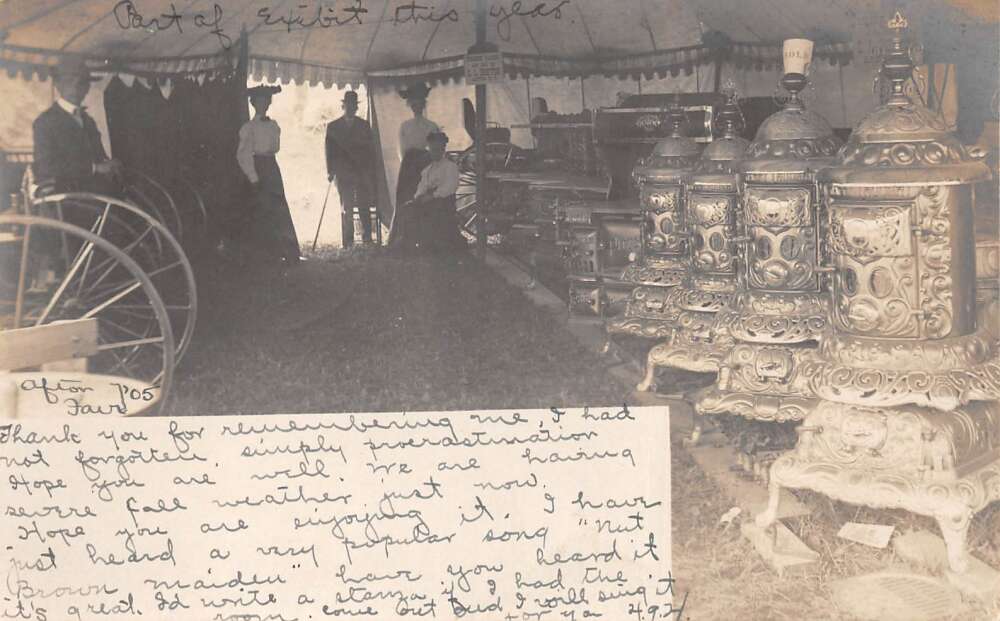 Part of Exibit this year.
SOLD
Afton
Fair
'05
Thank you for remembering me, I had
not forgotten, simply procrastination
Hope you are well. We are having
severe fall weather just now.
Hope you are enjoying it. I have
just heard a very popular song "Nut
Brown maiden" have you heard it
it's great. I'd write a stanza if I had the
room. come out and I will sing it
for you